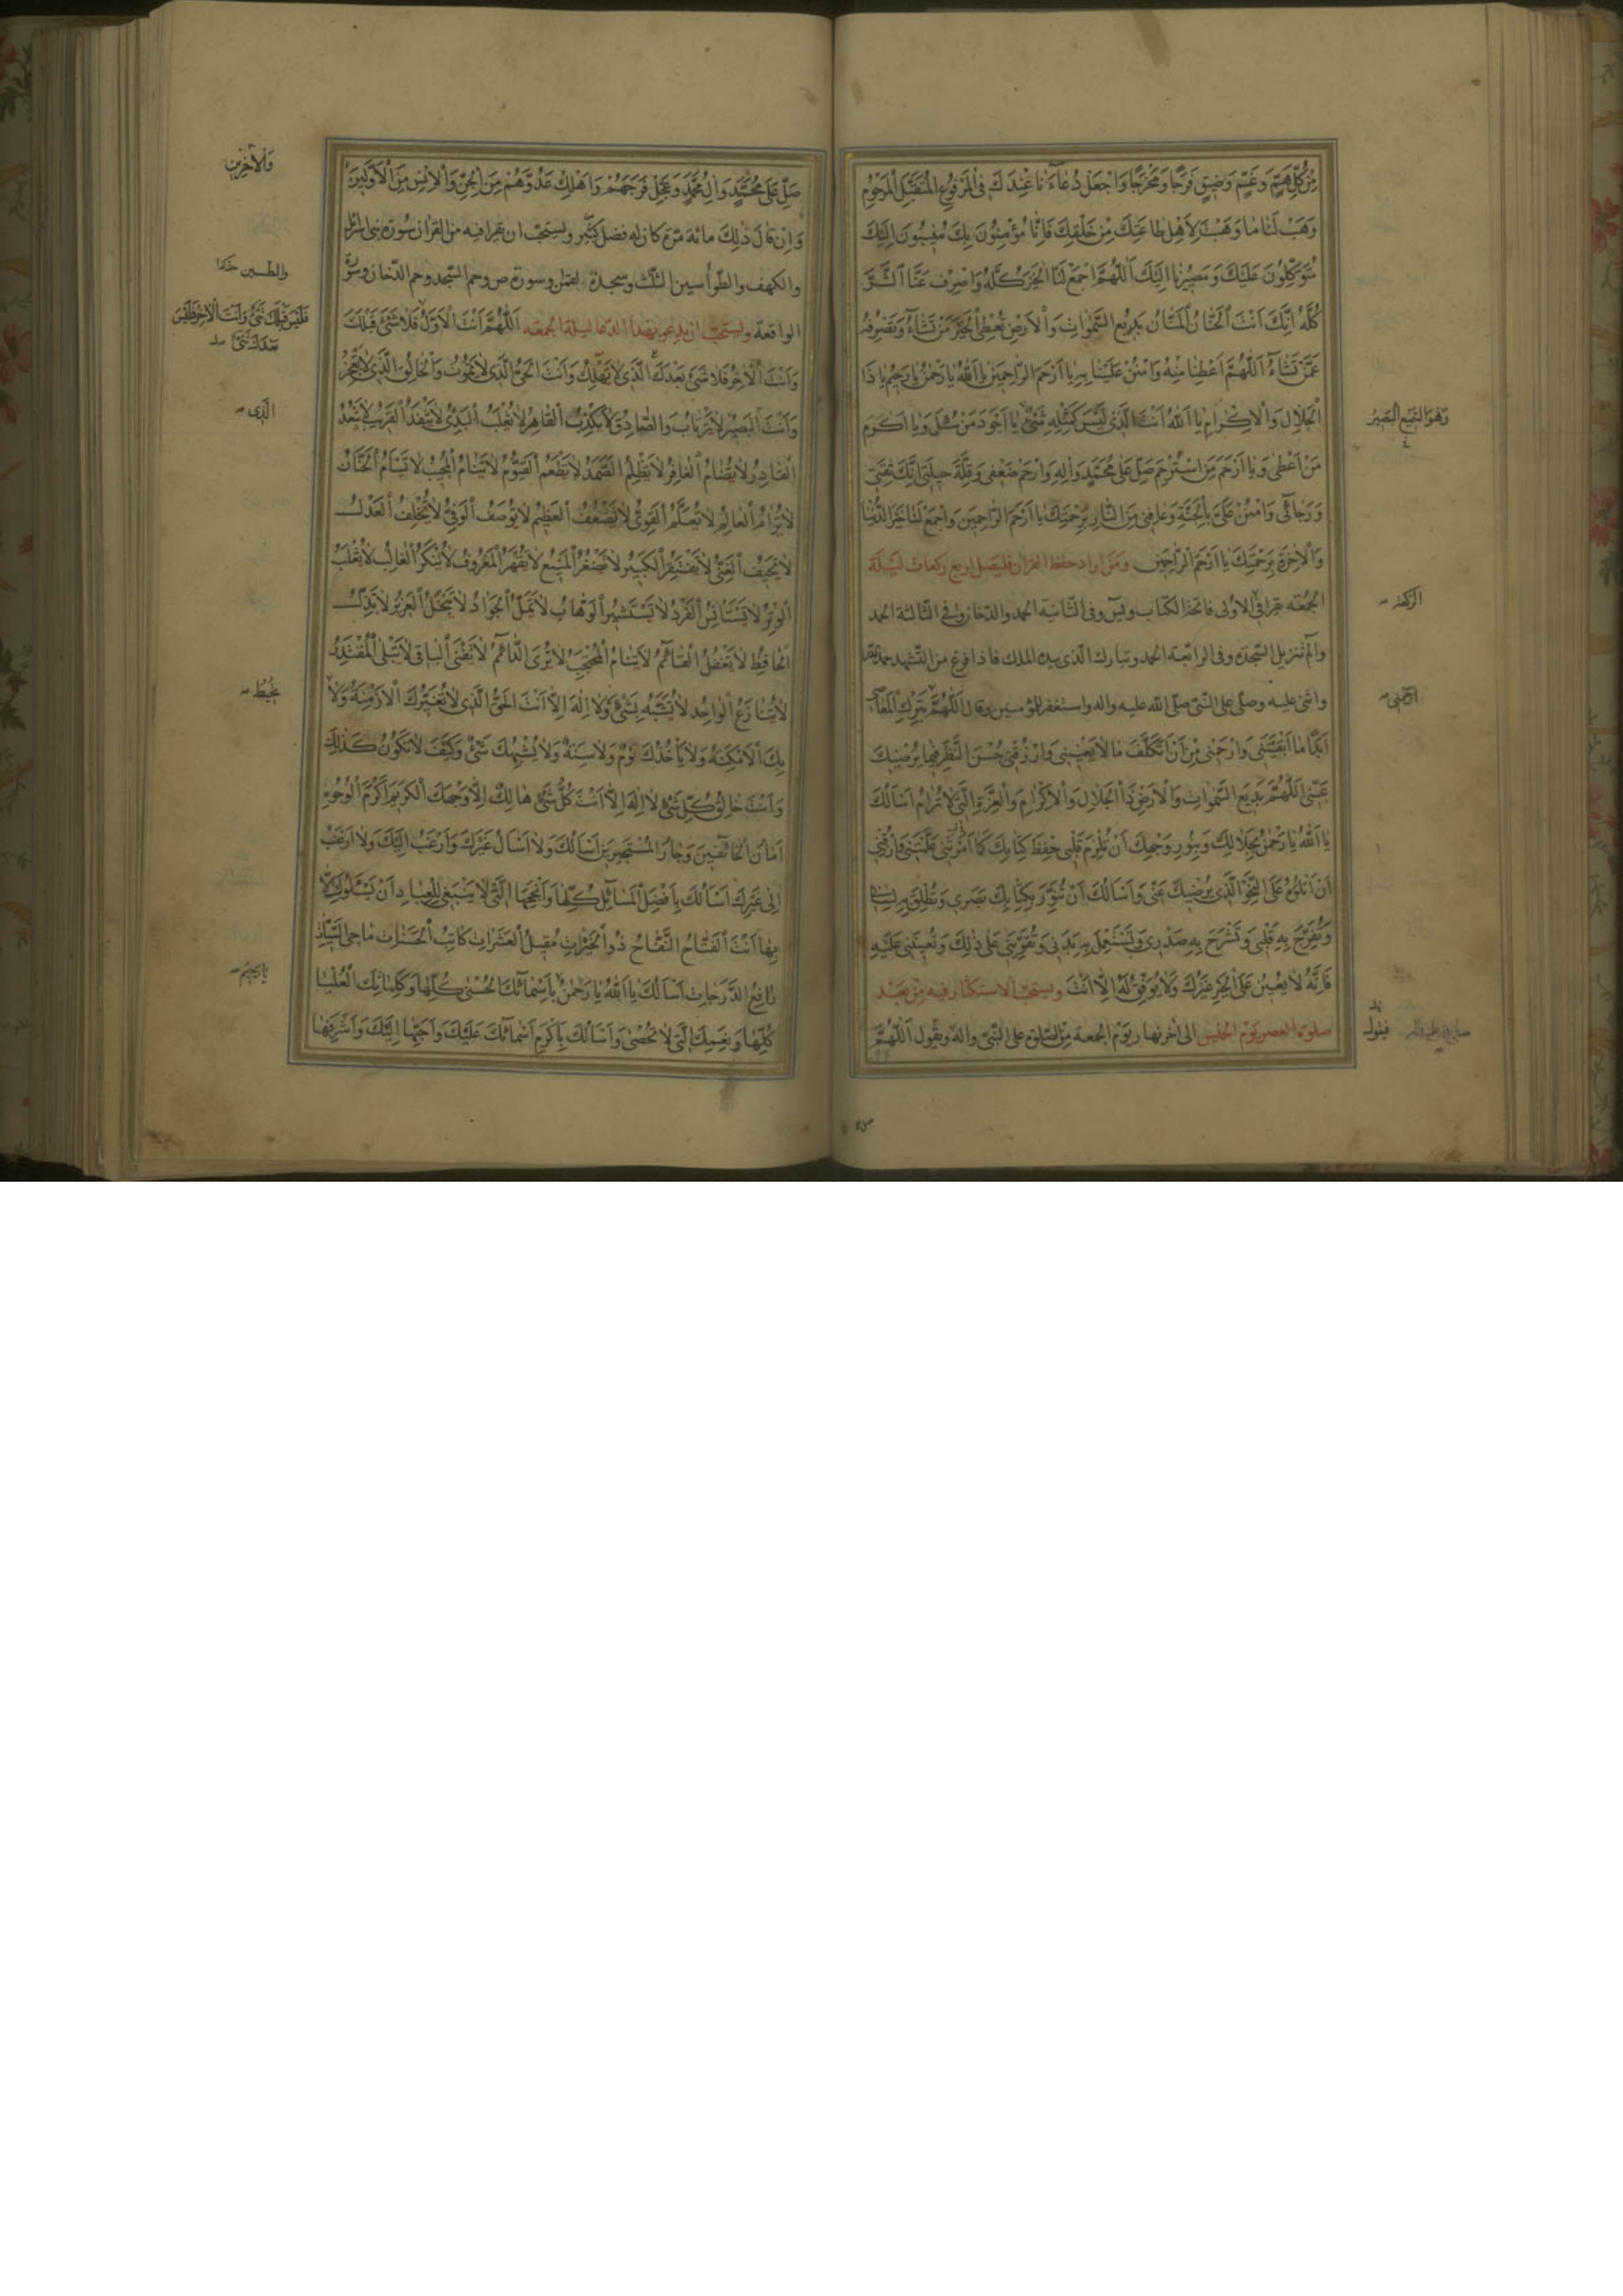 مِنْ كُلِّ هَمٍّ وَغَمٍّ وَضِيقٍ فَرَجًا وَمَخْرَجًا وَاجْعَلْ دُعَاءَنَا عِنْدَكَ فِي الْمَرْفُوعِ الْمُتَقَبَّلِ الْمَرْحُومِ
وَهَبْ لَنَا مَا وَهَبْتَ لِأَهْلِ طَاعَتِكَ مِنْ خَلْقِكَ فَإِنَّا مُؤْمِنُونَ بِكَ مُنِيبُونَ إِلَيْكَ
مُتَوَكِّلُونَ عَلَيْكَ وَمَصِيرُنَا إِلَيْكَ اَللّٰهُمَّ اجْمَعْ لَنَا الْخَيْرَ كُلَّهُ وَاصْرِفْ عَنَّا الشَّرَّ
كُلَّهُ إِنَّكَ أَنْتَ الْحَنَّانُ الْمَنَّانُ بَدِيعُ السَّمٰوَاتِ وَالْأَرْضِ تُعْطِي الْخَيْرَ مَنْ تَشَاءُ وَتَصْرِفُهُ
عَمَّنْ تَشَاءُ اَللّٰهُمَّ أَعْطِنَا مِنْهُ وَامْنُنْ عَلَيْنَا بِهِ يَا أَرْحَمَ الرَّاحِمِينَ يَا اَللّٰهُ يَا رَحْمٰنُ يَا رَحِيمُ يَا ذَا
الْجَلَالِ وَالْإِكْرَامِ يَا اَللّٰهُ أَنْتَ الَّذِي لَيْسَ كَمِثْلِهِ شَيْءٌ يَا أَجْوَدَ مَنْ سُئِلَ وَيَا أَكْرَمَ
وَهُوَ السَّمِيعُ الْبَصِيرُ
مَنْ أَعْطَى وَيَا أَرْحَمَ مَنِ اسْتُرْحِمَ صَلِّ عَلَى مُحَمَّدٍ وَآلِهِ وَارْحَمْ ضَعْفِي وَقِلَّةَ حِيلَتِي إِنَّكَ ثِقَتِي
وَرَجَائِي وَامْنُنْ عَلَيَّ بِالْجَنَّةِ وَعَافِنِي مِنَ النَّارِ بِرَحْمَتِكَ يَا أَرْحَمَ الرَّاحِمِينَ وَاجْمَعْ لَنَا خَيْرَ الدُّنْيَا
وَالْآخِرَةِ بِرَحْمَتِكَ يَا أَرْحَمَ الرَّاحِمِينَ وَمَنْ أَرَادَ حفظ القرآن فليصل أربع ركعات ليلة
الجمعة يقرأ في الأولى فاتحة الكتاب ويس وفي الثانية الحمد والدخان وفي الثالثة الحمد
والم تنزيل السجدة وفي الرابعة الحمد وتبارك الذي بيده الملك فاذا فرغ من التشهد حمد الله
واثنى عليه وصلى على النبي صلى الله عليه وآله واستغفر للمؤمنين وقال اَللّٰهُمَّ بِتَرْكِ الْمَعَاصِي
أَبَدًا مَا أَبْقَيْتَنِي وَارْحَمْنِي مِنْ أَنْ أَتَكَلَّفَ مَا لَا يَعْنِينِي وَارْزُقْنِي حُسْنَ النَّظَرِ فِيمَا يُرْضِيكَ
عَنِّي اَللّٰهُمَّ بَدِيعَ السَّمٰوَاتِ وَالْأَرْضِ ذَا الْجَلَالِ وَالْإِكْرَامِ وَالْعِزَّةِ الَّتِي لَا تُرَامُ أَسْأَلُكَ
يَا اَللّٰهُ يَا رَحْمٰنُ بِجَلَالِكَ وَبِنُورِ وَجْهِكَ أَنْ تُلْزِمَ قَلْبِي حِفْظَ كِتَابِكَ كَمَا عَلَّمْتَنِي فَارْزُقْنِي
أَنْ أَتْلُوَهُ عَلَى النَّحْوِ الَّذِي يُرْضِيكَ عَنِّي وَأَسْأَلُكَ أَنْ تُنَوِّرَ بِكِتَابِكَ بَصَرِي وَتُطْلِقَ بِهِ لِسَانِي
وَتُفَرِّجَ بِهِ قَلْبِي وَتَشْرَحَ بِهِ صَدْرِي وَتَسْتَعْمِلَ بِهِ بَدَنِي وَتُقَوِّيَنِي عَلَى ذٰلِكَ وَتُعِينَنِي عَلَيْهِ
فَإِنَّهُ لَا يُعِينُ عَلَى الْخَيْرِ غَيْرُكَ وَلَا يُوَفِّقُ لَهُ إِلَّا أَنْتَ ويستحب الاستكثار فيه من بعد
صلوة العصر يوم الخميس الى اخر نهار يوم الجمعة من الصلوة على النبي وآله ويقول اَللّٰهُمَّ
فيقول
صَلِّ عَلَى مُحَمَّدٍ وَآلِ مُحَمَّدٍ وَعَجِّلْ فَرَجَهُمْ وَأَهْلِكْ عَدُوَّهُمْ مِنَ الْجِنِّ وَالْإِنْسِ مِنَ الْأَوَّلِينَ
وَالْآخِرِينَ
وَإِنْ قَالَ ذٰلِكَ مائة مرة كان له فضل كثير ويستحب ان يقرأ فيه من القرآن سورة بني اسرائيل
والكهف والطواسين الثلث وسجدة لقمن وسورة ص وحم السجدة وحم الدخان وسورة
الواقعة ويستحب ان يدعو بهذا الدعا ليلة الجمعة اَللّٰهُمَّ أَنْتَ الْأَوَّلُ فَلَا شَيْءَ قَبْلَكَ
وَأَنْتَ الْآخِرُ فَلَا شَيْءَ بَعْدَكَ الَّذِي لَا يَهْلِكُ وَأَنْتَ الْحَيُّ الَّذِي لَا يَمُوتُ وَالْخَالِقُ الَّذِي لَا يَعْجِزُ
وَأَنْتَ الْبَصِيرُ لَا يَرْتَابُ وَالصَّادِقُ لَا يَكْذِبُ الْقَاهِرُ لَا يُغْلَبُ الْبَدِيءُ لَا يَنْفَدُ الْقَرِيبُ لَا يَبْعُدُ
الَّذِي
الْقَادِرُ لَا يُضَامُ الْغَافِرُ لَا يَظْلِمُ الصَّمَدُ لَا يَطْعَمُ الْقَيُّومُ لَا يَنَامُ الْمُجِيبُ لَا يَسْأَمُ الْحَنَّانُ
لَا يُرَامُ الْعَالِمُ لَا يُعَلَّمُ الْقَوِيُّ لَا يَضْعُفُ الْعَظِيمُ لَا يُوصَفُ الْوَفِيُّ لَا يُخْلِفُ الْعَدْلُ
لَا يَحِيفُ الْغَنِيُّ لَا يَفْتَقِرُ الْكَبِيرُ لَا يَصْغُرُ الْمَنِيعُ لَا يُقْهَرُ الْمَعْرُوفُ لَا يُنْكَرُ الْغَالِبُ لَا يُغْلَبُ
الْوِتْرُ لَا يَسْتَأْنِسُ الْفَرْدُ لَا يَسْتَشِيرُ الْوَهَّابُ لَا يَمَلُّ الْجَوَادُ لَا يَبْخَلُ الْعَزِيزُ لَا يَذِلُّ
الْحَافِظُ لَا يَغْفُلُ الْقَائِمُ لَا يَنَامُ الْمُحْتَجِبُ لَا يُرَى الدَّائِمُ لَا يَفْنَى الْبَاقِي لَا يَبْلَى الْمُقْتَدِرُ
لَا يُنَازَعُ الْوَاحِدُ لَا يُشَبَّهُ بِشَيْءٍ وَلَا إِلٰهَ إِلَّا أَنْتَ الْحَقُّ الَّذِي لَا تُغَيِّرُكَ الْأَزْمِنَةُ وَلَا
بِكَ الْأَمْكِنَةُ وَلَا يَأْخُذُكَ نَوْمٌ وَلَا سِنَةٌ وَلَا يُشْبِهُكَ شَيْءٌ وَكَيْفَ لَا تَكُونُ كَذٰلِكَ
وَأَنْتَ خَالِقُ كُلِّ شَيْءٍ لَا إِلٰهَ إِلَّا أَنْتَ كُلُّ شَيْءٍ هَالِكٌ إِلَّا وَجْهَكَ الْكَرِيمَ أَكْرَمَ الْوُجُوهِ
أَمَانَ الْخَائِفِينَ وَجَارَ الْمُسْتَجِيرِينَ أَسْأَلُكَ وَلَا أَسْأَلُ غَيْرَكَ وَأَرْغَبُ إِلَيْكَ وَلَا أَرْغَبُ
إِلَى غَيْرِكَ أَسْأَلُكَ بِأَفْضَلِ الْمَسَائِلِ كُلِّهَا وَأَنْجَحِهَا الَّتِي لَا يَنْبَغِي لِلْعِبَادِ أَنْ يَسْئَلُوكَ إِلَّا
بِهَا أَنْتَ الْفَتَّاحُ النَّفَّاحُ ذُو الْخَيْرَاتِ مُقِيلُ الْعَثَرَاتِ كَاتِبُ الْحَسَنَاتِ مَاحِي السَّيِّئَاتِ
رَافِعُ الدَّرَجَاتِ أَسْأَلُكَ يَا اَللّٰهُ يَا رَحْمٰنُ بِأَسْمَائِكَ الْحُسْنَى كُلِّهَا وَكَلِمَاتِكَ الْعُلْيَا
يَا رَحِيمُ
كُلِّهَا وَنِعَمِكَ الَّتِي لَا تُحْصَى وَأَسْأَلُكَ بِأَكْرَمِ أَسْمَائِكَ عَلَيْكَ وَأَحَبِّهَا إِلَيْكَ وَأَشْرَفِهَا